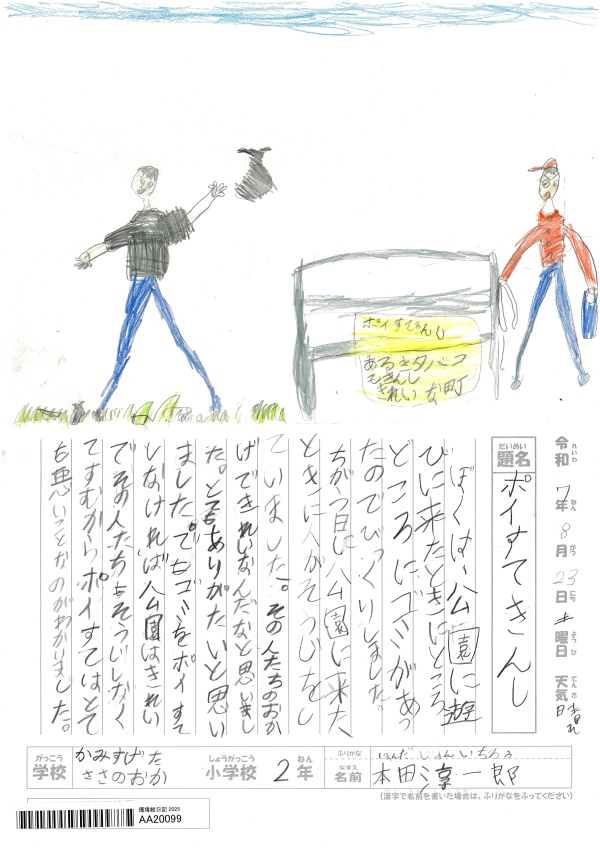 ポイすてきんし
あるきタバコ
もきんし
きれいな町
令和7年8月23日土曜日 天気 晴れ
れいわ ねん がつ にち ようび てんき
だいめい
題名 ポイすてきんし
ぼくは、公園に遊
びに来たときにところ
どころにゴミがあっ
たのでびっくりしました。
ちがう日に公園に来た
ときに人がそうじをし
ていました。その人たちのおか
げできれいなんだなと思いまし
た。とてもありがたいと思い
ました。でもゴミをポイすて
しなければ公園はきれい
でその人たちもそうじしなく
てすむからポイすてはとて
も悪いことなのがわかりました。
がっこう
学校 かみすげた ささのおか
しょうがっこう ねん
小学校 2年
ふりがな ほんだ じゅんいちろう
なまえ
名前 本田淳一郎
(漢字で名前を書いた場合は、ふりがなをふってください)
環境絵日記 2025
AA20099